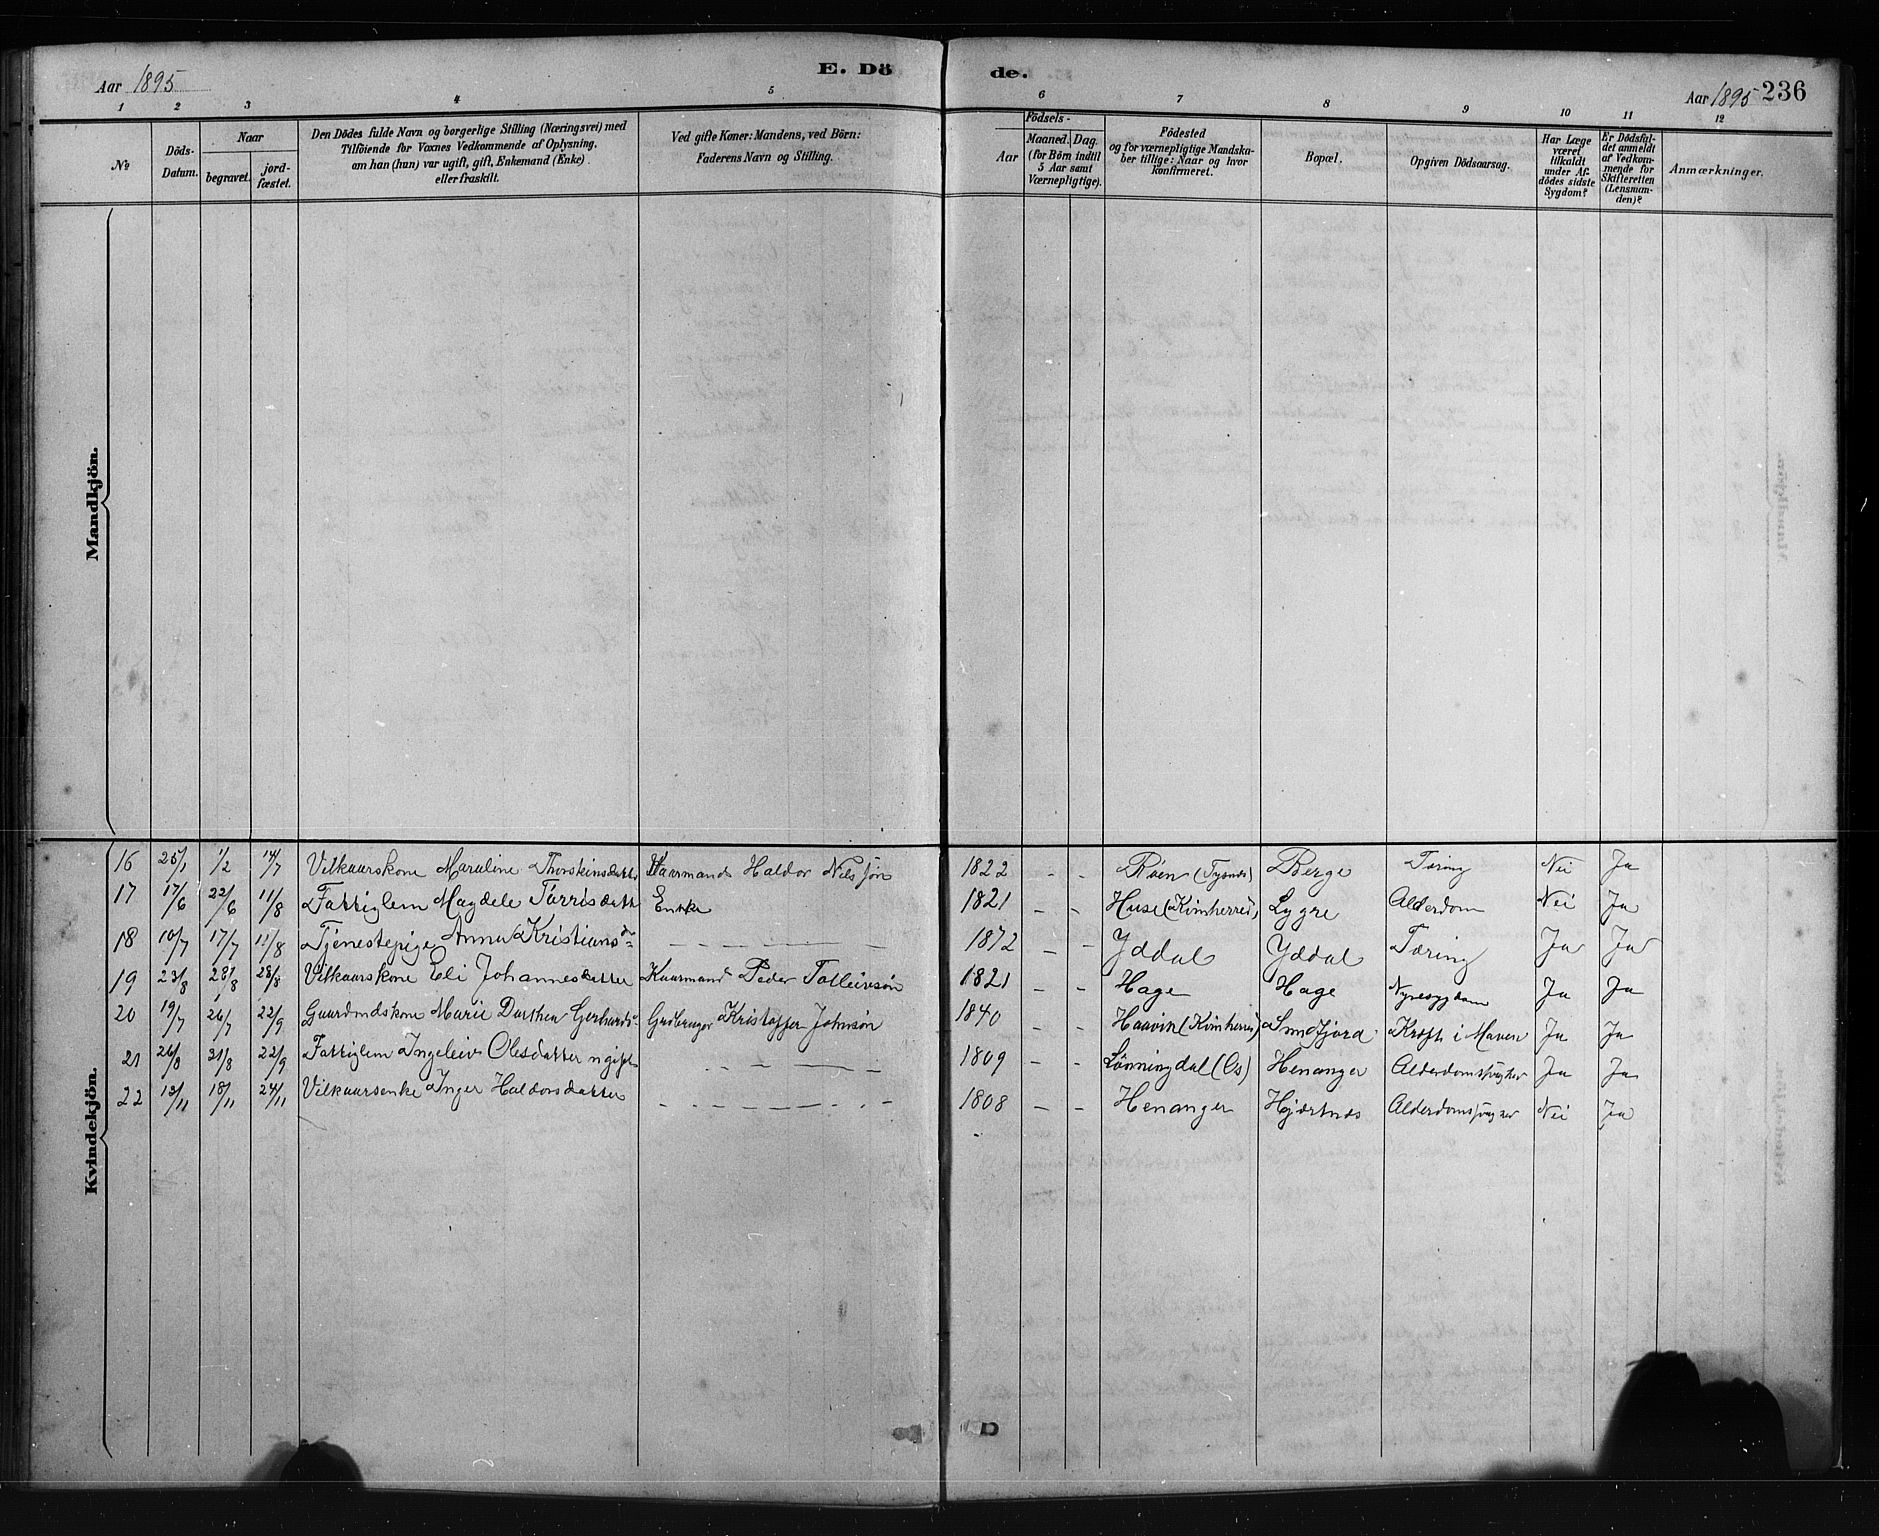 E. Döde.
Aar 1895
Aar 1895 236
1 2 3 4 5 6 7 8 9 10 11 12
№
Döds-Datum.
Naar begravet. jordfæstet.
Den Dödes fulde Navn og borgerlige Stilling (Næringsvei) med Tilföiende for Voxnes Vedkommende af Oplysning, om han (hun) var ugift, gift, Enkemand (Enke) eller fraskilt.
Ved gifte Koner: Mandens, ved Börn: Faderens Navn og Stilling.
Födsels-
Aar
Maaned. Dag. (for Börn indtil 5 Aar samt Værnepligtige).
Födested og for værnepligtige Mandskaber tillige: Naar og hvor konfirmeret.
Bopæl.
Opgiven Dödsaarsag.
Har Læge været tilkaldt under Afdödes sidste Sygdom?
Er Dödsfaldet anmeldt af Vedkommende for Skifteretten (Lensmanden)?
Anmærkninger.
Mandkjön.
Kvindekjön.
16 25/1 1/2 14/7 Vilkaarskone Maraline Haldor Nilssön 1822 - - (Tysnes) Berge Tæring Nei Ja
17 17/6 22/6 11/8 Fattiglem Magdele Enke 1821 - - Huse (Kvinherred) Lygre Alderdom Nei Ja
18 10/7 17/7 11/8 Tjenestepige Anna Kristiansdr 1872 - - Yddal Yddal Tæring Ja Ja
19 23/8 28/8 28/8 Vilkaarskone Eli Johannesdatter Kaarmand Peder Tolleivsön 1821 - - Hage Hage Nyresygdom Ja Ja
20 19/7 26/7 22/9 Marie Dorthea Kristoffer Johnsön 1840 Haavik (Kvinherred) Kræft i Maven Ja Ja
21 26/8 31/8 22/9 Fattiglem Ingeleiv Olesdatter ugift 1809 - - Lönningdal (Os) Henanger Ja Ja
22 13/11 18/11 24/11 Vilkaarsenke Inger Haldorsdatter 1808 - - Henanger Hjartnes Nei Ja